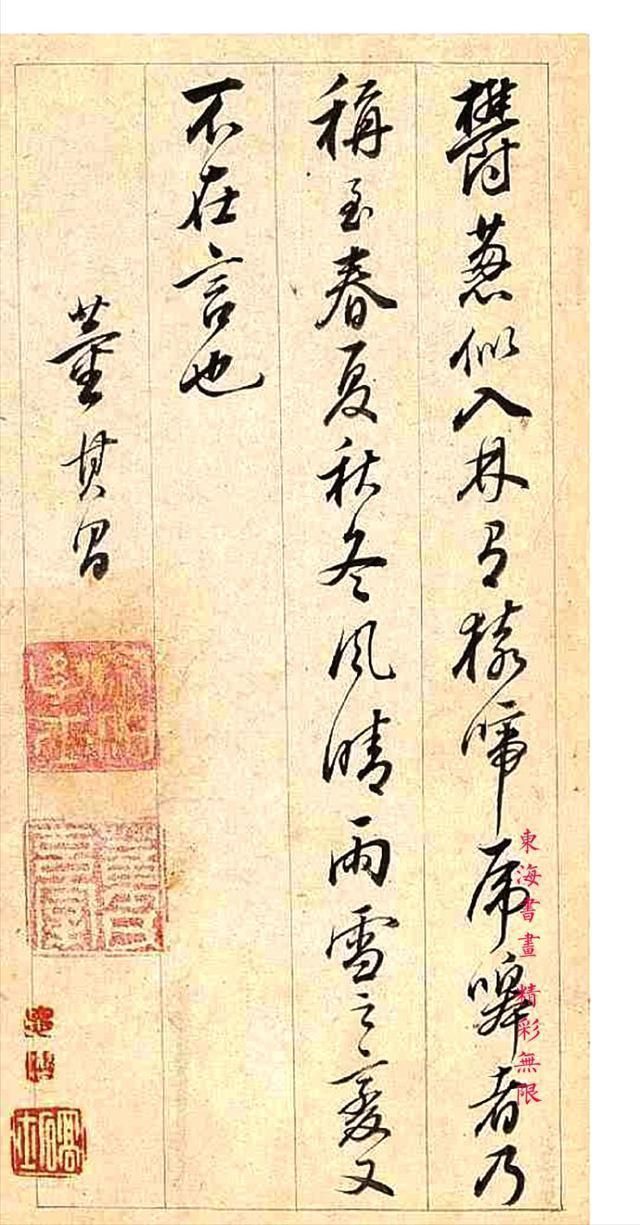 欝葱似入林有猿啼虎嗥者乃
稱至春夏秋冬風晴雨雪之變又
不在言也
董其昌
東海書畫 精彩無限